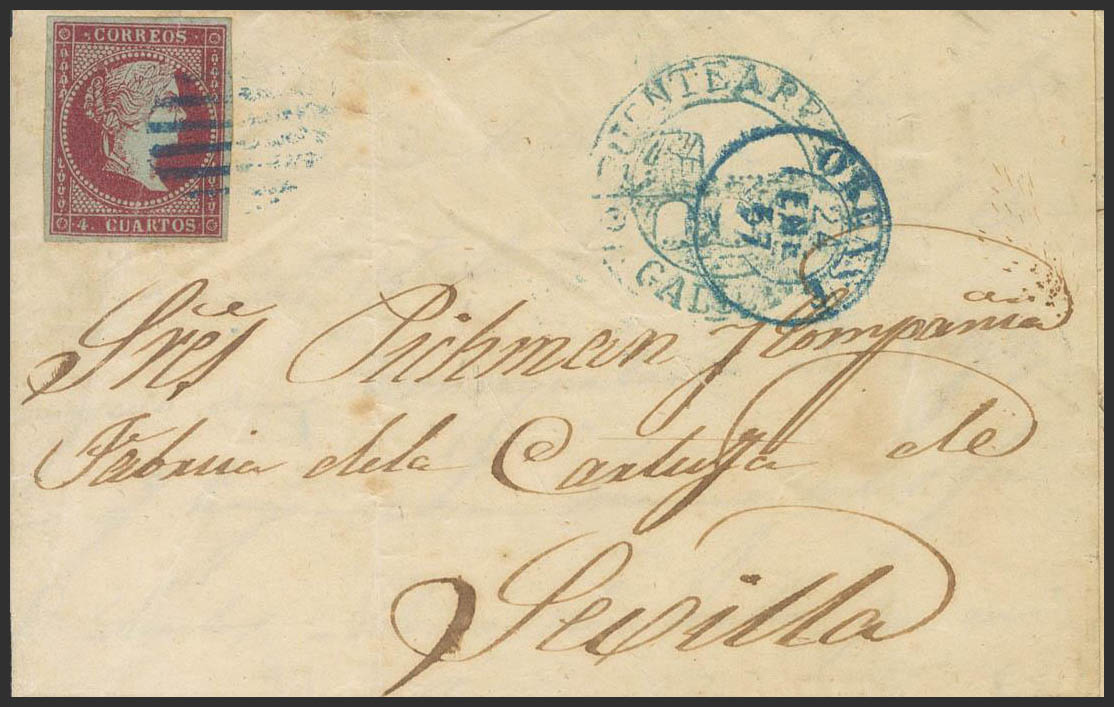 CORREOS
4. CUARTOS
PUENTEAREAS
GALICIA
22
ENE
57
Sres Pichman y Compañia
Fabrica dela Cartuja de
Sevilla